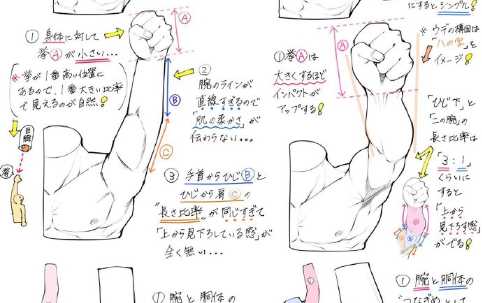 にするとシンプル!
① 身体に対して
拳Ⓐが小さい…
※ 拳が1番高い位置に
あるので、1番大きい比率
で見えるのが自然!
目線
拳
A
B
C
② 腕のラインが
直線すぎるので
「肌の柔かさ」が
伝わらない…
③ 手首からひじⒷと
ひじから肩Ⓒの
"長さ比率"が同じすぎて
「上から見下ろしている感」が
全く無い…
① 拳Ⓐは
大きくするほど
インパクトが
アップする!
A
※ ウデの構図は
"ハの字"を
イメージ!
「ひじ下」と
「二の腕」の
長さ比率は
「3:1」
くらいに
すると
「上から
見下ろす感」
がでる!
① 腕と胴体の
① 腕と胴体の
"つなぎめ"として